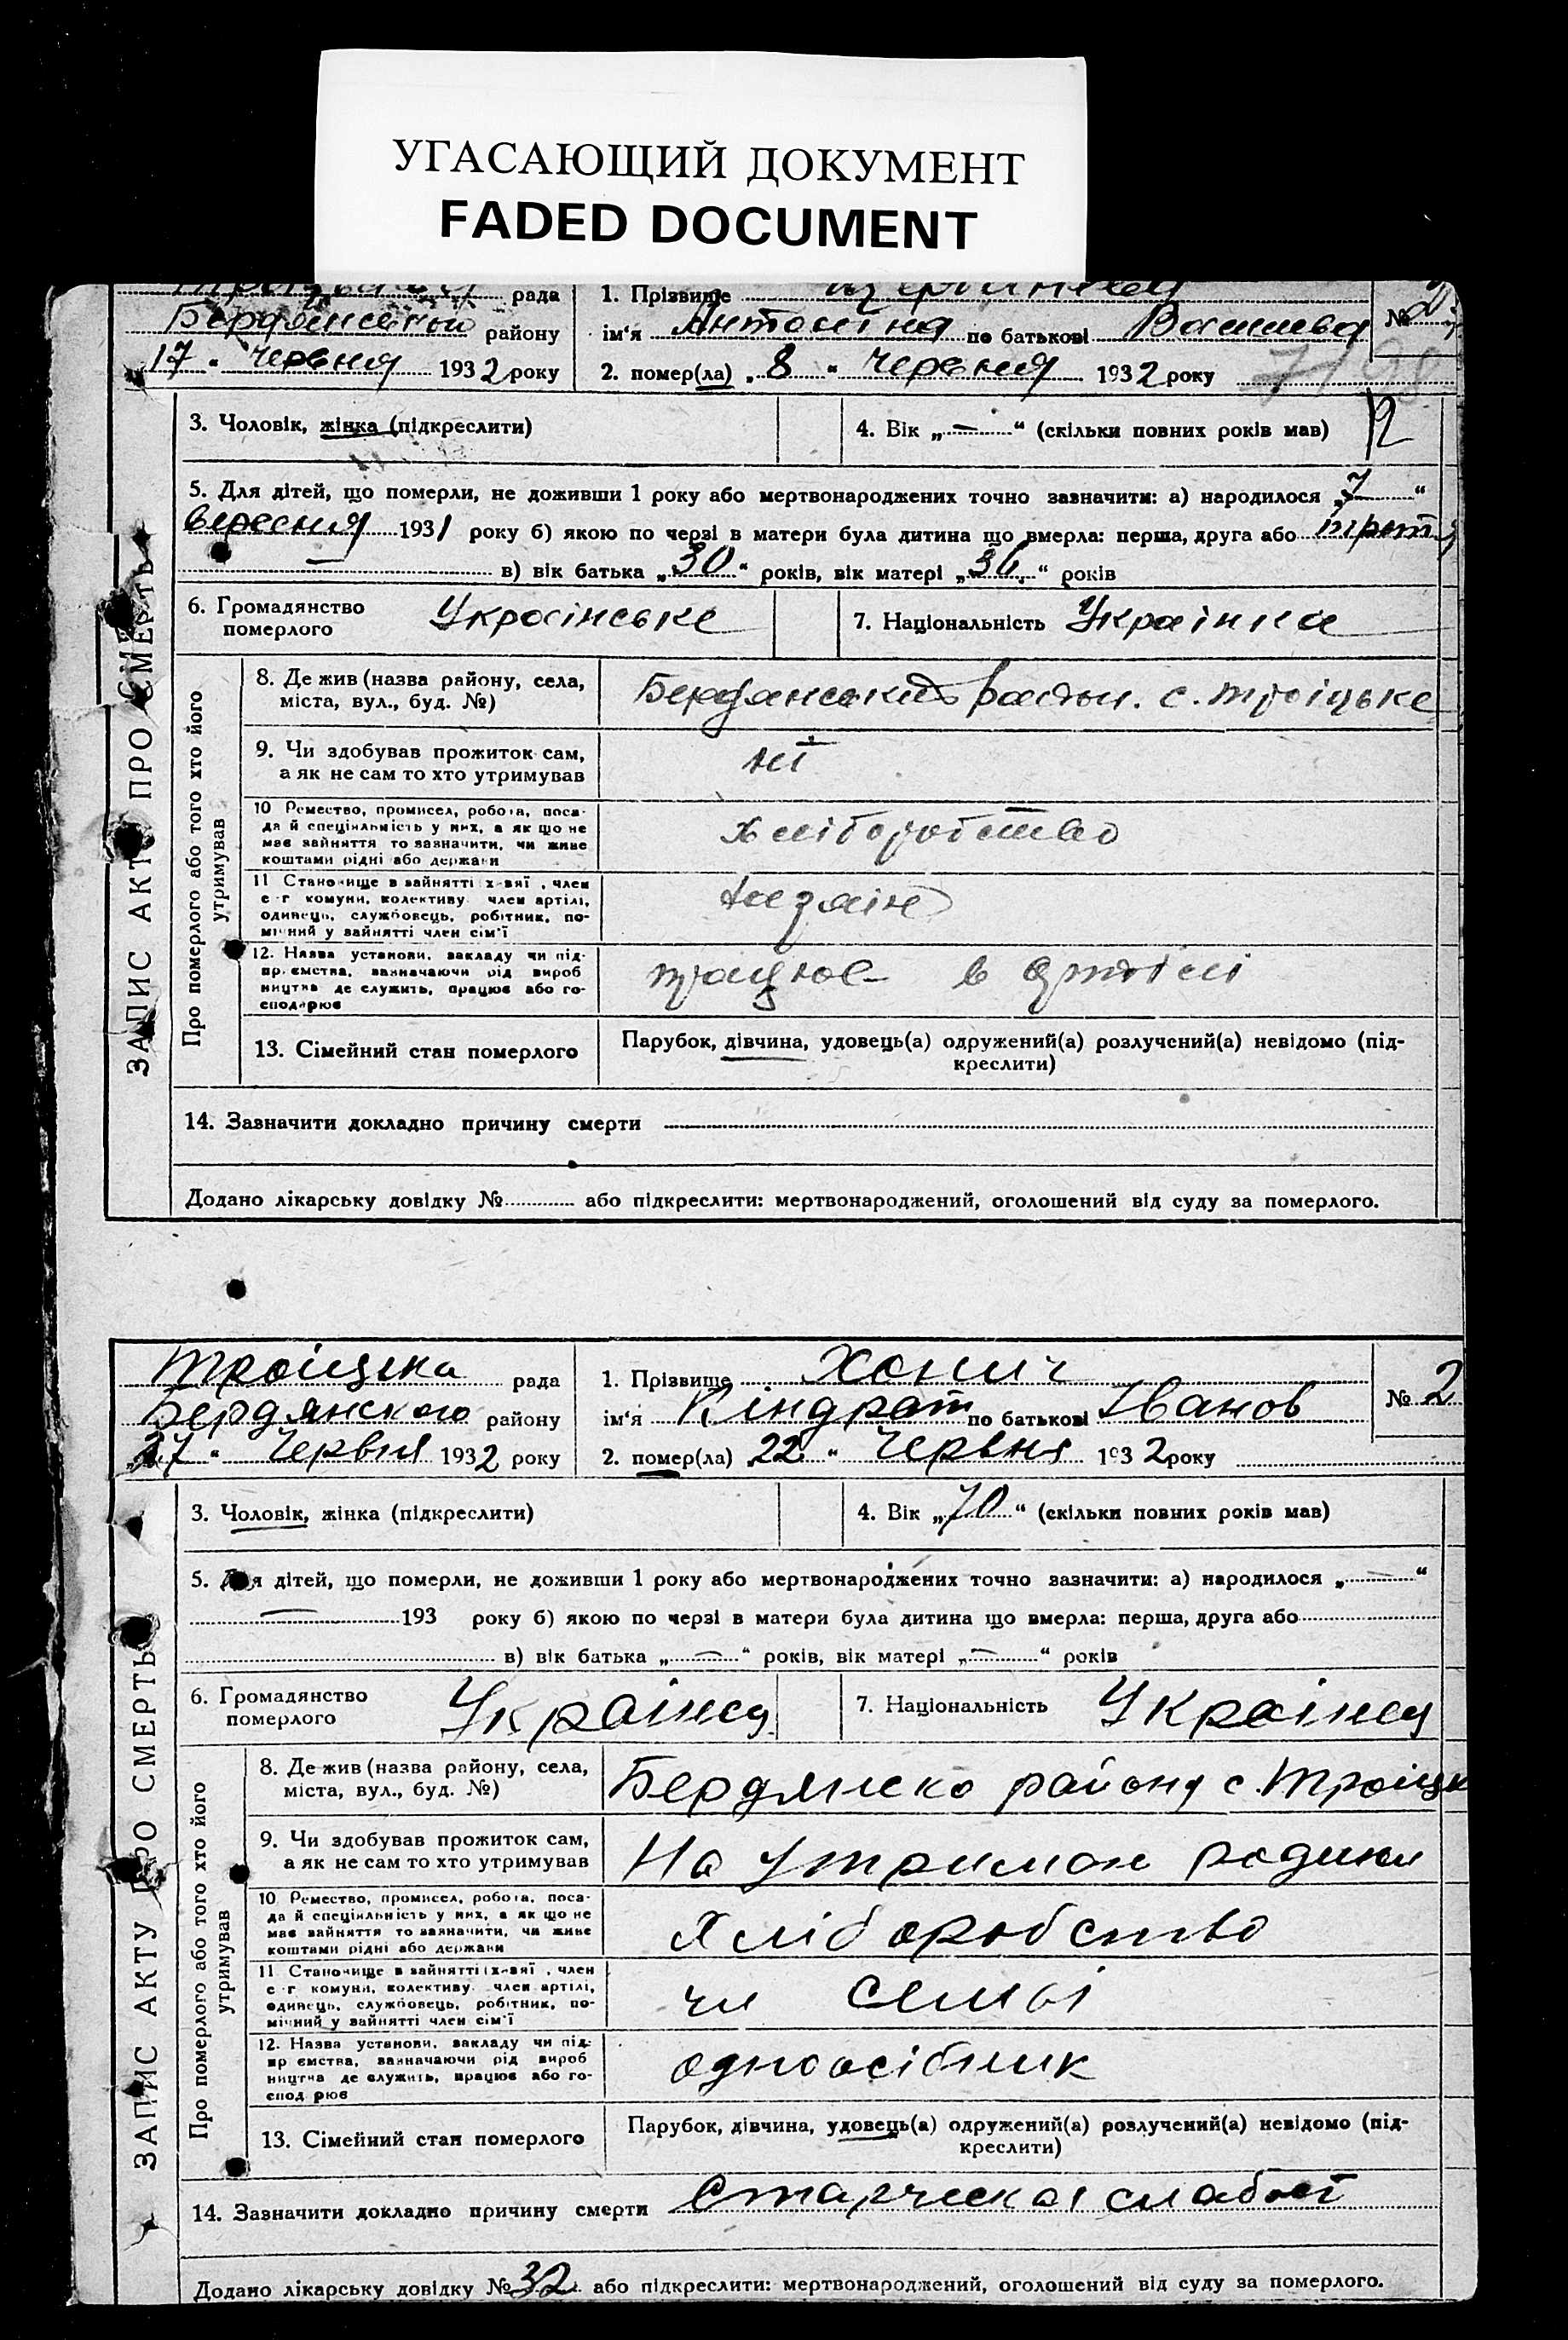 УГАСАЮЩИЙ ДОКУМЕНТ
FADED DOCUMENT
рада
Бердянського району
17 " Червня 1932 року
1. Прізвище
ім'я Антоніна по батькові Василева
№
2. помер(ла) „ 8 " Червня 1932 року
3. Чоловік, жінка (підкреслити)
4. Вік „ — " (скільки повних років мав)
5. Для дітей, що померли, не доживши 1 року або мертвонароджених точно зазначити: а) народилося „ 7 "
вересня 1931 року б) якою по черзі в матери була дитина що вмерла: перша, друга або третя
— в) вік батька „ 30 " років, вік матері „ " років
6. Громадянство померлого Украінське
7. Національність Украінка
ЗАПИС АКТУ ПРО СМЕРТЬ
Про померлого або того хто його утримував
8. Де жив (назва району, села,
міста, вул., буд. №)
Бердянський район. с. Троіцьке
9. Чи здобував прожиток сам,
а як не сам то хто утримував
ні
10 Ремество, промисел, робота, поса-
да й спеціяльність у них, а як що не
має зайняття то зазначити, чи живе
коштами рідні або держави
Хліборобство
11 Становище в зайнятті: хазяї, член
с-г комуни, колективу член артілі,
одинець, службовець, робітник, по-
мічний у зайнятті член сім'ї
12. Назва установи, закладу чи під-
приємства, зазначаючи рід вироб
ництва де служить, працює або го-
сподарює
працює в артілі
13. Сімейний стан померлого
Парубок, дівчина, удовець(а) одружений(а) розлучений(а) невідомо (під-
креслити)
14. Зазначити докладно причину смерти
Додано лікарську довідку № або підкреслити: мертвонароджений, оголошений від суду за померлого.
Троіцька рада
Бердянского району
27 " Червня 1932 року
1. Прізвище
ім'я Кіндрат по батькові Іванов
№ 2
2. помер(ла) 22 " Червня 1932 року
3. Чоловік, жінка (підкреслити)
4. Вік „ 70 " (скільки повних років мав)
5. Для дітей, що померли, не доживши 1 року або мертвонароджених точно зазначити: а) народилося „ — "
— 193 року б) якою по черзі в матери була дитина що вмерла: перша, друга або
в) вік батька „ — " років, вік матері „ — " років
6. Громадянство померлого Украінец
7. Національність Украінец
ЗАПИС АКТУ ПРО СМЕРТЬ
Про померлого або того хто його утримував
8. Де жив (назва району, села,
міста, вул., буд. №)
Бердянско району с. Троіцк
9. Чи здобував прожиток сам,
а як не сам то хто утримував
На утриман родини
10 Ремество, промисел, робота, поса-
да й спеціяльність у них, а як що не
має зайняття то зазначити, чи живе
коштами рідні або держави
Хліборобство
11 Становище в зайнятті: хазяї, член
с-г комуни, колективу член артілі,
одинець, службовець, робітник, по-
мічний у зайнятті член сім'ї
чл семьі
12. Назва установи, закладу чи під-
приємства, зазначаючи рід вироб
ництва де служить, працює або го-
сподарює
одноосібник
13. Сімейний стан померлого
Парубок, дівчина, удовець(а) одружений(а) розлучений(а) невідомо (під-
креслити)
14. Зазначити докладно причину смерти Старческая слабост
Додано лікарську довідку № 32 або підкреслити: мертвонароджений, оголошений від суду за померлого.